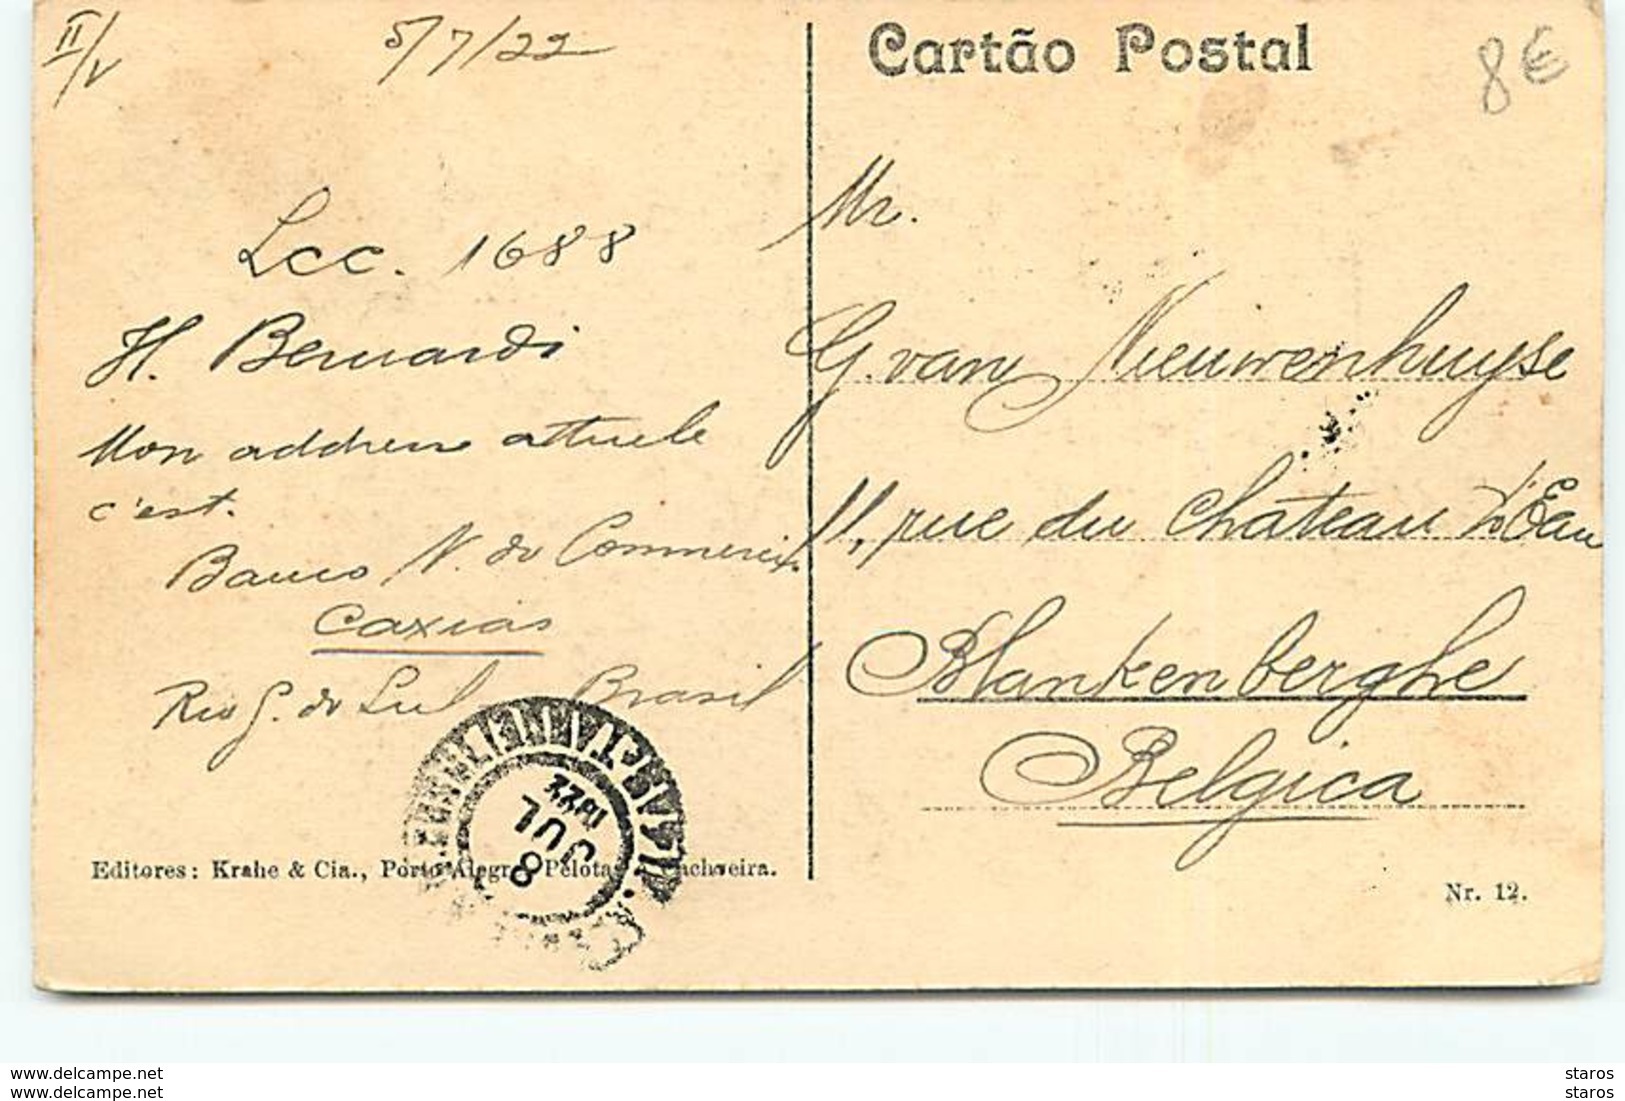 II/V
5/7/22
Lcc. 1688
H. Bernardi
Mon addresse attuele
c'est.
Banco N. do Commercio
Caxias
Rio G. do Sul Brasil
8
JUL
1922
Editores: Krahe & Cia., Porto Alegre, Pelotas, Cachoeira.
Cartão Postal
8€
Mr.
G. van Nieuwenhuyse
11, rue du Chateau d'Eau
Blankenberghe
Belgica
Nr. 12.
www.delcampe.net
www.delcampe.net
staros
staros